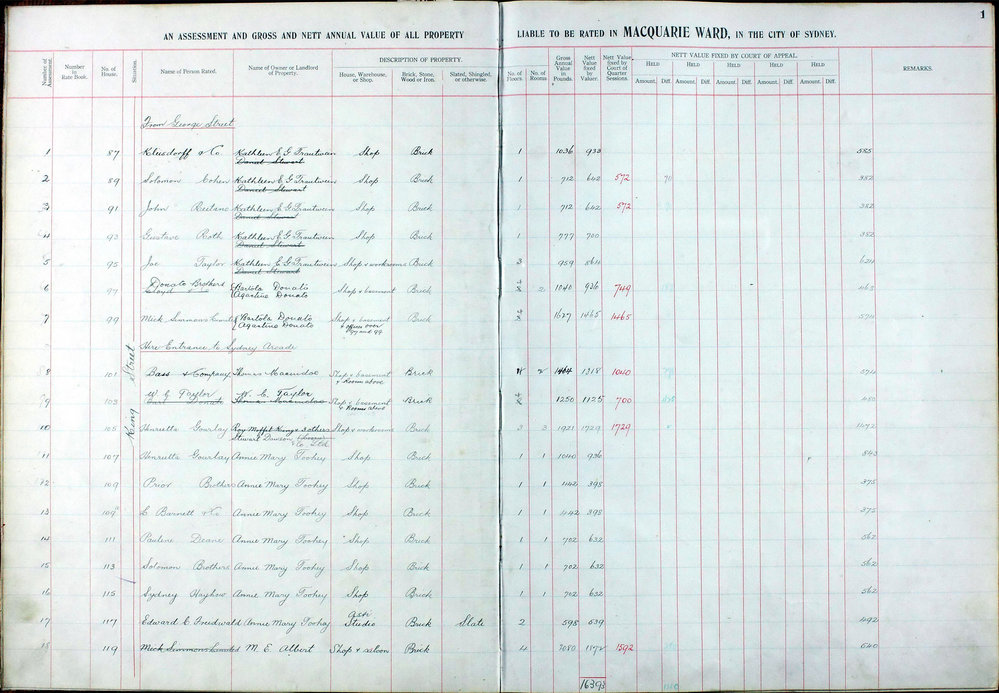 1
AN ASSESSMENT AND GROSS AND NETT ANNUAL VALUE OF ALL PROPERTY LIABLE TO BE RATED IN MACQUARIE WARD, IN THE CITY OF SYDNEY.
Number of Assessment. Number in Rate Book. No. of House. Situation. Name of Person Rated. Name of Owner or Landlord of Property. DESCRIPTION OF PROPERTY. House, Warehouse, or Shop. Brick, Stone, Wood or Iron. Slated, Shingled, or otherwise. No. of Floors. No. of Rooms Gross Annual Value in Pounds. Nett Value fixed by Valuer. Nett Value fixed by Court of Quarter Sessions. NETT VALUE FIXED BY COURT OF APPEAL. REMARKS.
HELD HELD HELD HELD HELD
Amount. Diff. Amount. Diff. Amount. Diff. Amount. Diff. Amount. Diff.
King Street
From George Street
1 87 & Co Kathleen E G Trautwein Shop Brick 1 1036 933 585
Daniel Stewart
2 89 Solomon Cohen Kathleen E G Trautwein Shop Brick 1 712 642 572 70 382
Daniel Stewart
3 91 John Kathleen E G Trautwein Shop Brick 1 712 642 572 382
Daniel Stewart
4 93 Gustave Roth Kathleen E G Trautwein Shop Brick 1 777 700 382
Daniel Stewart
5 95 Joe Taylor Kathleen E G Trautwein Shop & workrooms Brick 3 959 864 624
Daniel Stewart
6 97 Donato Brothers Bartolo Donato Shop & basement Brick 2 1040 936 749 468
Agostino Donato
7 99 Mick Simmons Limited Bartolo Donato Shop & basement Brick 1627 1465 1465 574
Agostino Donato & offices over 97 and 99
Here Entrance to Sydney Arcade
8 101 Bass & Company Thomas Shop & basement Brick 2 1464 1318 1040 574
& Rooms above
9 103 W C Taylor W. C. Taylor Shop & basement Brick 1250 1125 700 450
& Rooms above
10 105 Henrietta Gourlay Roy Moffit King & 3 others Shop & workrooms Brick 3 3 1921 1729 1729 1472
Stewart Dawson & Co Ltd
11 107 Henrietta Gourlay Annie Mary Toohey Shop Brick 1 1 1040 936 843
12 109 Prior Brothers Annie Mary Toohey Shop Brick 1 1 442 398 375
13 109 E Barnett & Co Annie Mary Toohey Shop Brick 1 1 442 398 375
14 111 Pauline Deane Annie Mary Toohey Shop Brick 1 1 702 632 562
15 113 Solomon Brothers Annie Mary Toohey Shop Brick 1 1 702 632 562
16 115 Sydney Hayhow Annie Mary Toohey Shop Brick 1 1 702 632 562
17 117 Edward C. Freedwald Annie Mary Toohey Studio Brick Slate 2 598 539 492
18 119 Mick Simmons Limited M. E. Albert Shop & saloon Brick 4 2080 1872 1592 640
16393